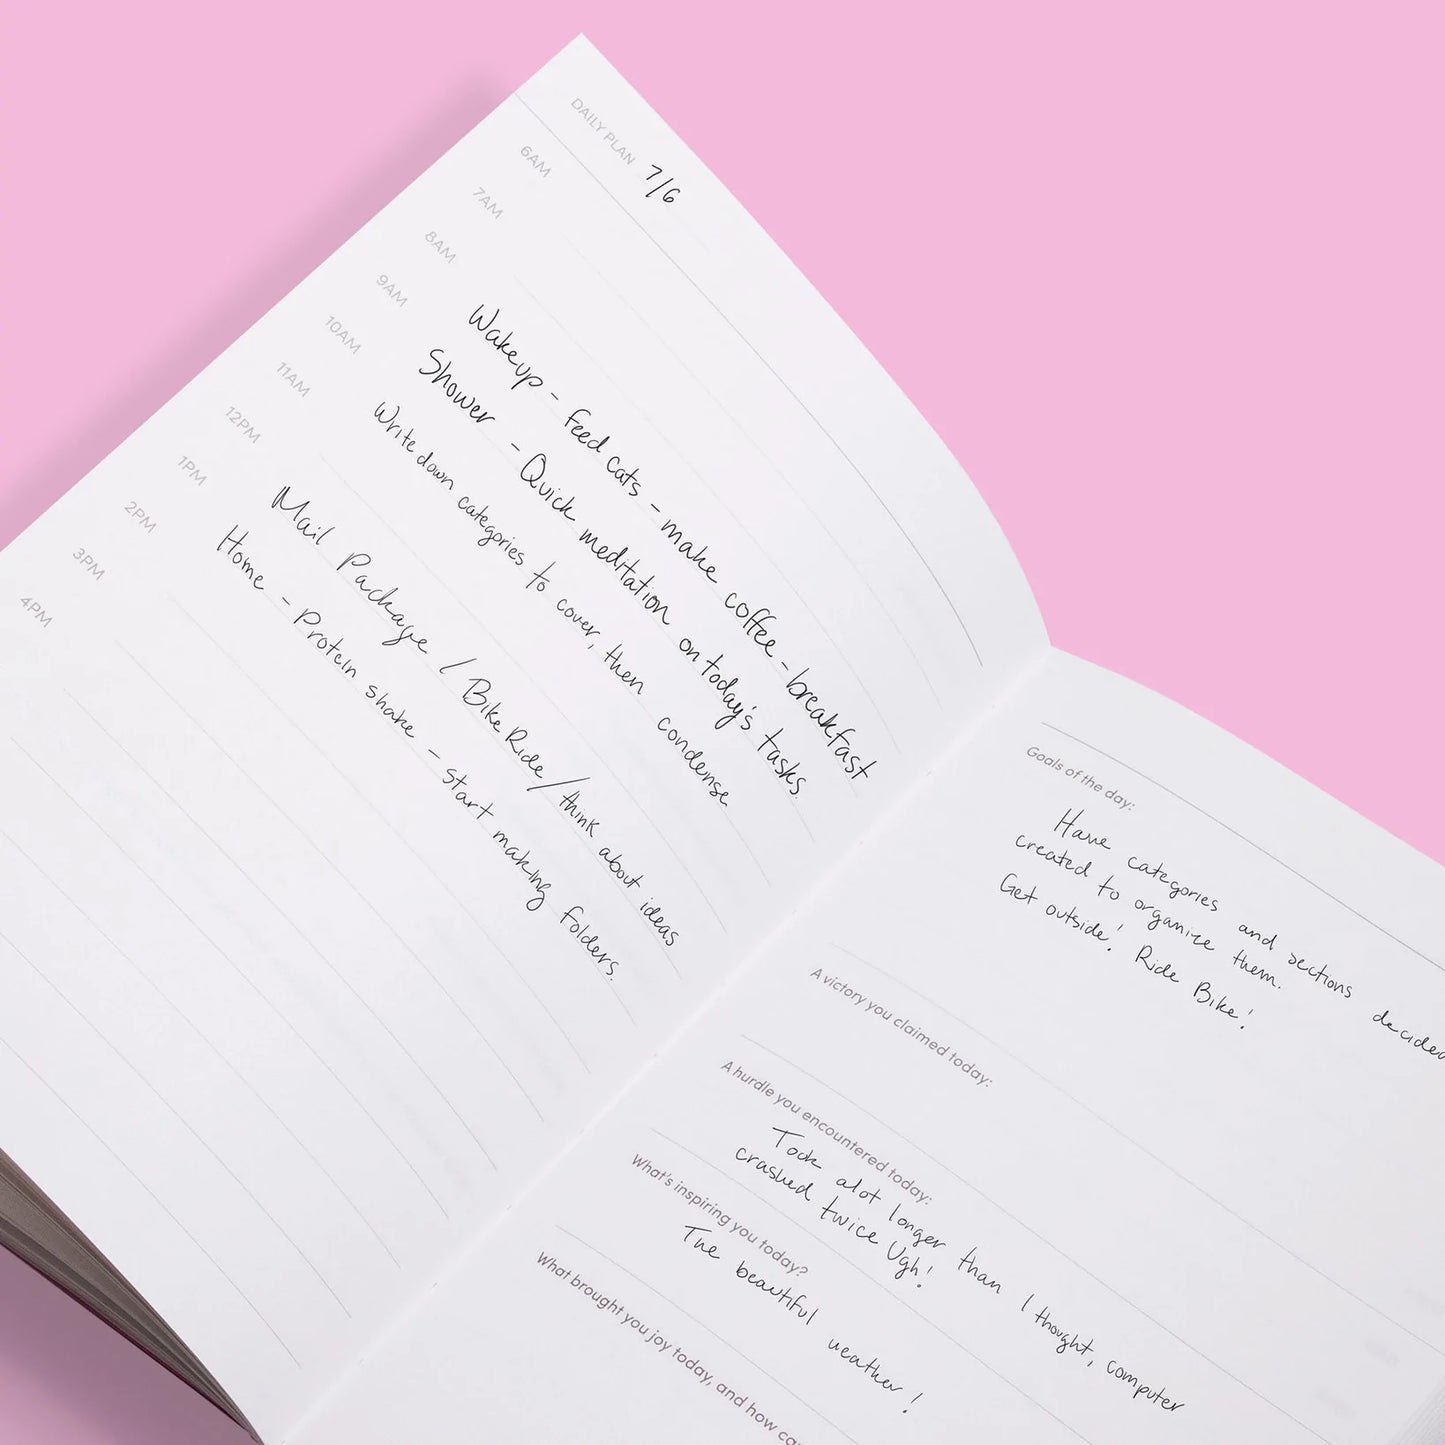 DAILY PLAN 7/6
6AM
7AM
8AM
9AM Wakeup - feed cats - make coffee - breakfast
10AM Shower - Quick meditation on today's tasks.
11AM Write down categories to cover, then condense
12PM
1PM Mail Package / Bike Ride / think about ideas
2PM Home - Protein shake - start making folders.
3PM
4PM
Goals of the day:
Have categories and sections decided
created to organize them.
Get outside! Ride Bike!
A victory you claimed today:
A hurdle you encountered today:
Took alot longer than I thought, computer
crashed twice Ugh!
What's inspiring you today?
The beautiful weather!
What brought you joy today, and how